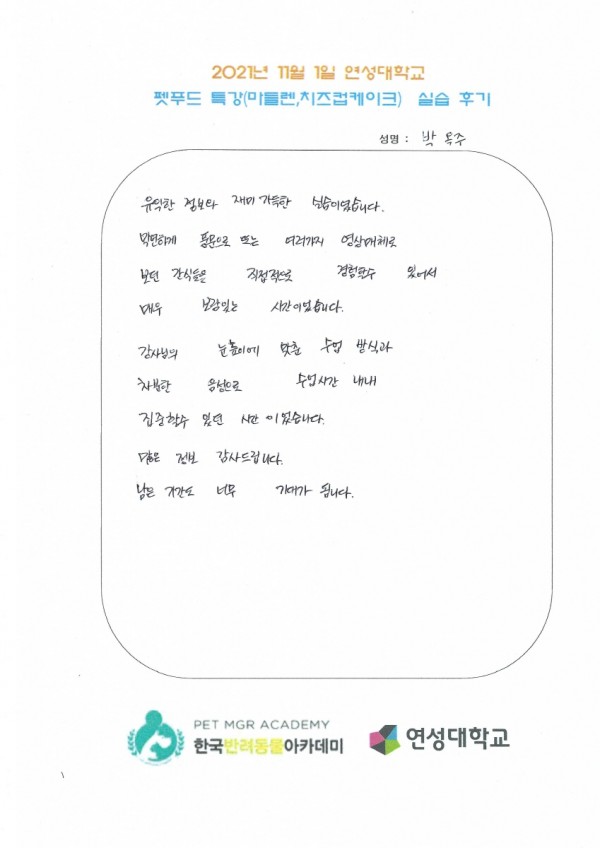 2021년 11월 1일 연성대학교
펫푸드 특강(마들렌,치즈컵케이크) 실습 후기
성명 : 박 옥주
유익한 정보와 재미 가득한 실습이었습니다.
막연하게 풍문으로 또는 여러가지 영상매체로
보던 간식들은 직접적으로 경험할수 있어서
매우 보람있는 시간이었습니다.
강사님의 눈높이에 맞춘 수업 방식과
차분한 음성으로 수업시간 내내
집중할수 있던 시간이었습니다.
많은 정보 감사드립니다.
남은 기간도 너무 기대가 됩니다.
PET MGR ACADEMY
한국반려동물아카데미
연성대학교